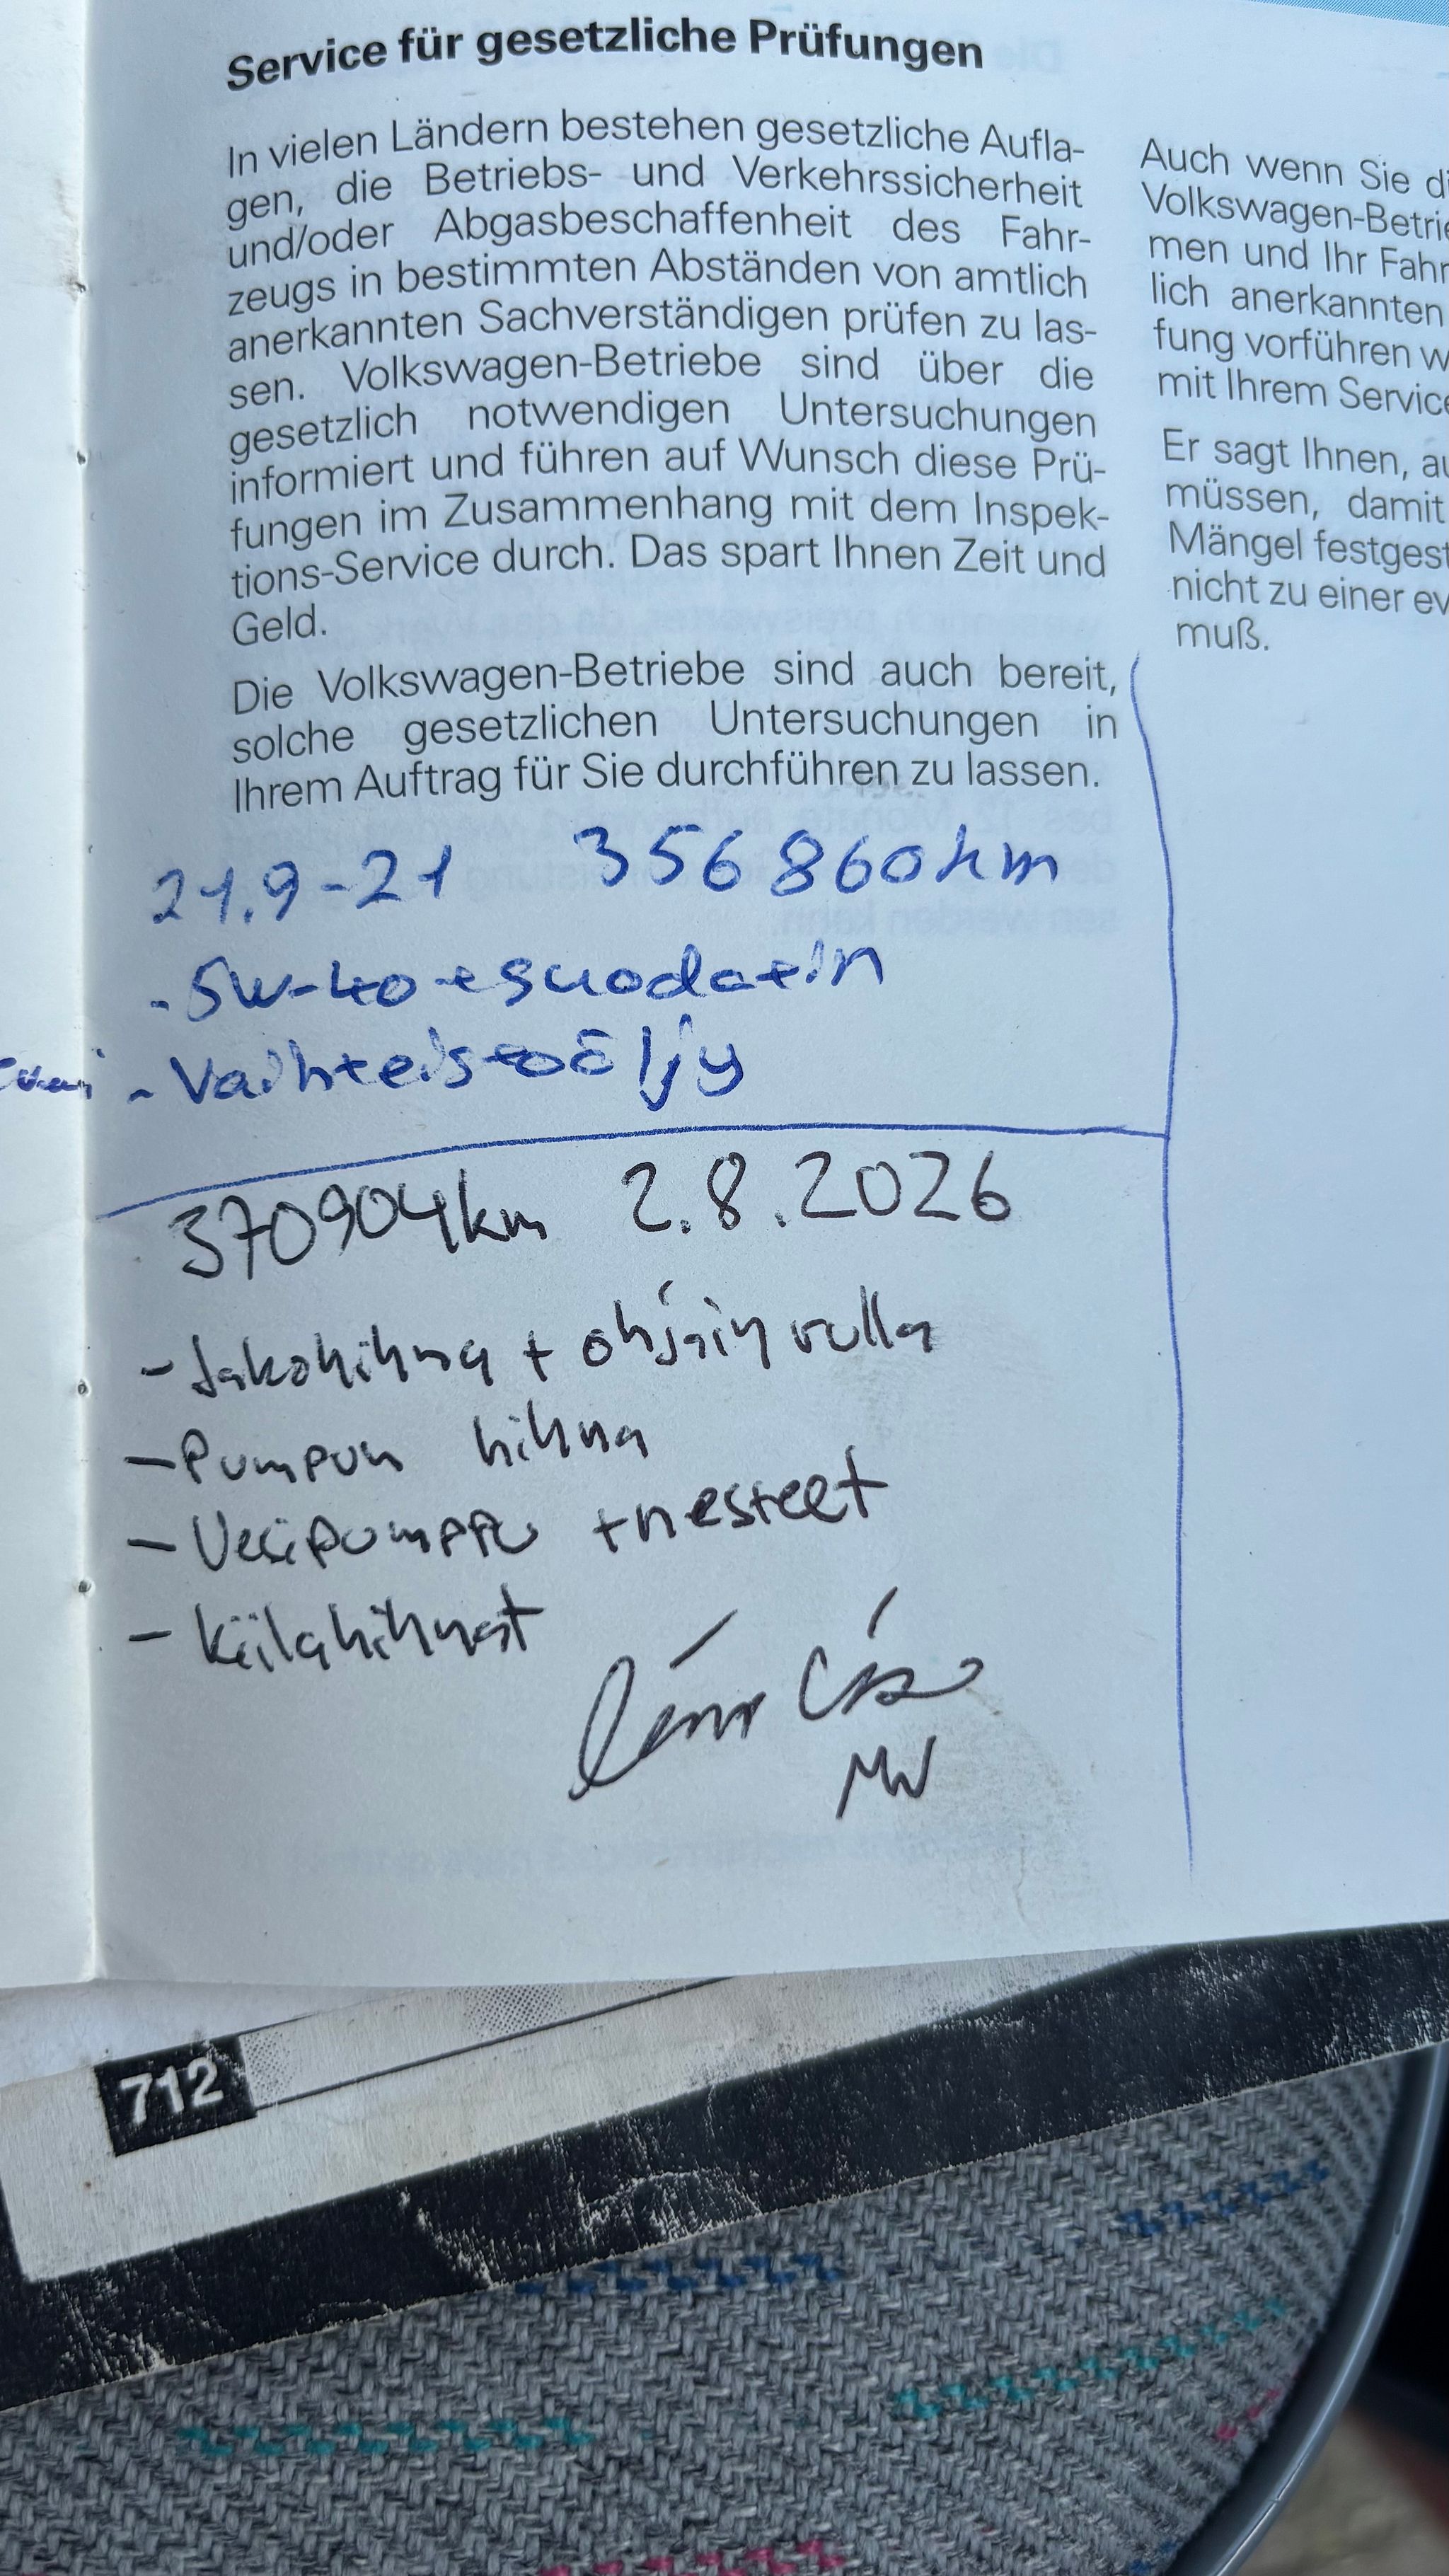 Service für gesetzliche Prüfungen
In vielen Ländern bestehen gesetzliche Aufla-
gen, die Betriebs- und Verkehrssicherheit
und/oder Abgasbeschaffenheit des Fahr-
zeugs in bestimmten Abständen von amtlich
anerkannten Sachverständigen prüfen zu las-
sen. Volkswagen-Betriebe sind über die
gesetzlich notwendigen Untersuchungen
informiert und führen auf Wunsch diese Prü-
fungen im Zusammenhang mit dem Inspek-
tions-Service durch. Das spart Ihnen Zeit und
Geld.
Die Volkswagen-Betriebe sind auch bereit,
solche gesetzlichen Untersuchungen in
Ihrem Auftrag für Sie durchführen zu lassen.
Auch wenn Sie di
Volkswagen-Betrie
men und Ihr Fahr
lich anerkannten
fung vorführen w
mit Ihrem Service
Er sagt Ihnen, au
müssen, damit
Mängel festgest
nicht zu einer ev
muß.
21.9-21 356860km
-5w-40+suodatin
- Vaihteistoöljy
370904km 2.8.2026
- Jakohihna + ohjainrulla
- Pumpun hihna
- Vesipumppu + nesteet
- Kiilahihnat
MW
712